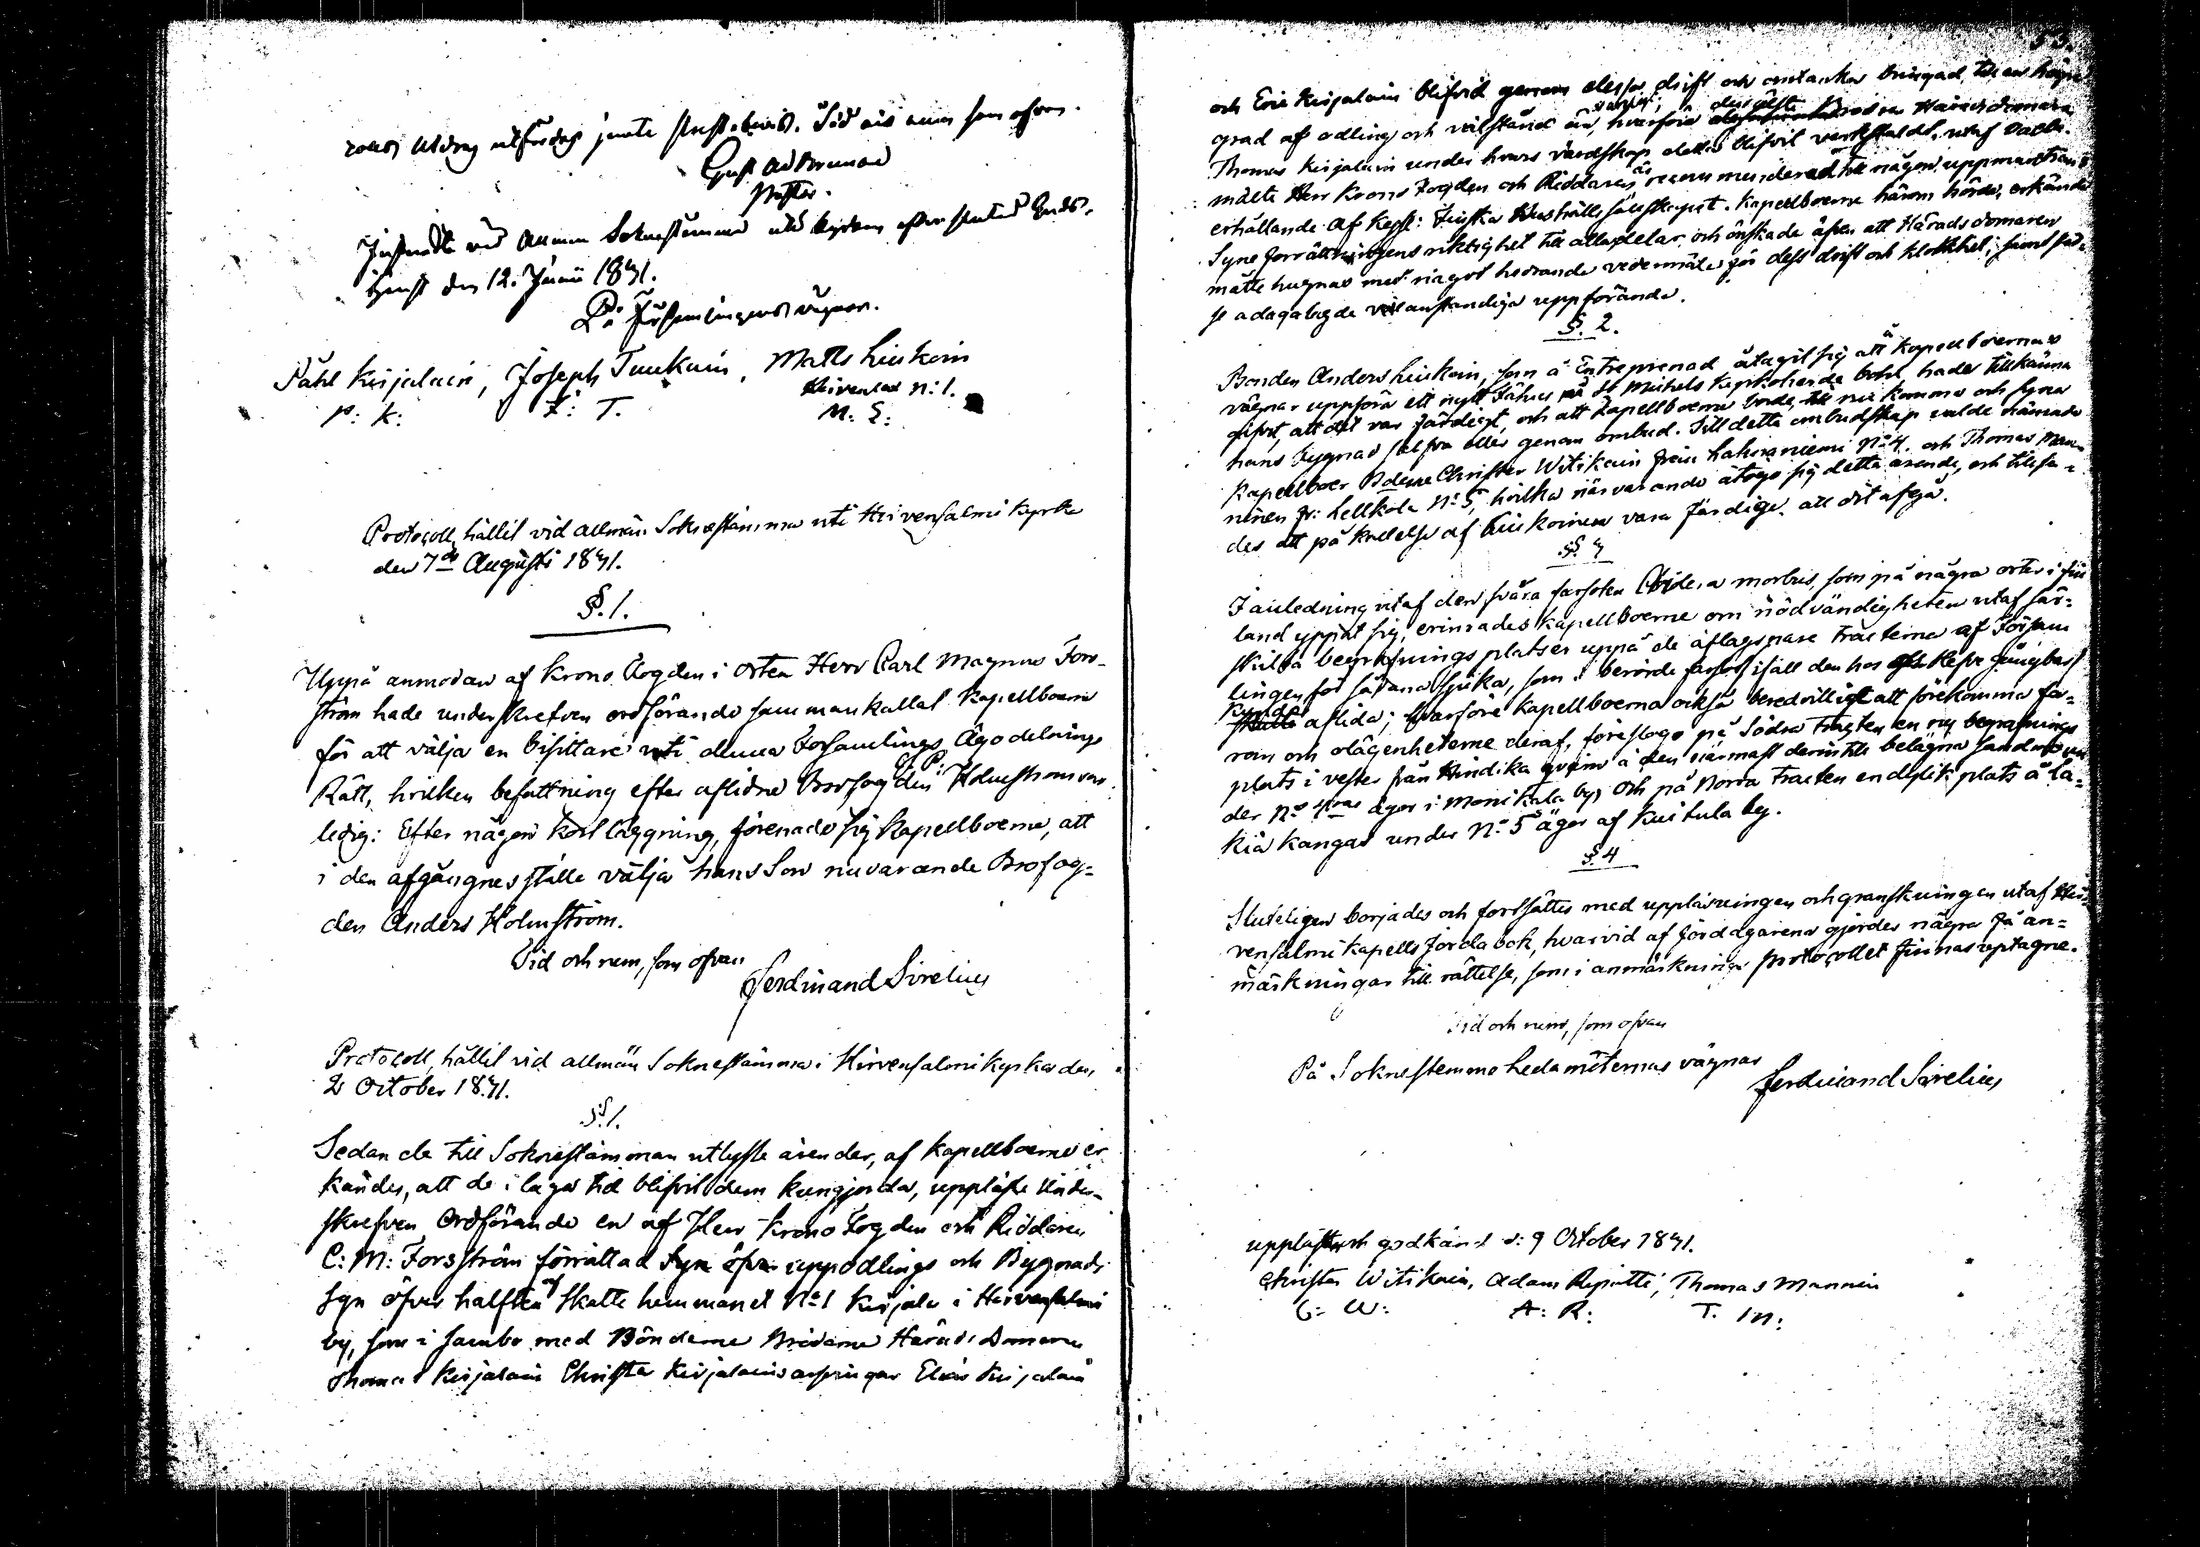 Gust Ad Brunou
Notar.
den 12. Junii 1831.
På Församlingens vägnar.
Påhl Kirjalain, Joseph Tuukain, Matts Liukoin
Hirvensal N:1.
P: K: J: T. M: L:
Protocoll, hållit vid allmän Soknestämma uti Hirvensalmi Kyrka
den 7de Augusti 1831.
§. 1.
Uppå anmodan af Krono Fogden i Orten Herr Carl Magnus Fors-
ström hade underskrefven ordförande sammankallat Kapellboerne
för att välja en bisittare uti denna Församlings Ägodelnings
Rätt, hvilken befattning efter aflidne Brofogden P: Holmström var
ledig: Efter någon kort läggning, förenade sig Kapellboerne, att
i den afgångnes ställe välja hans Son nuvarande Brofog-
den Anders Holmström.
Tid och rum, som ofvan
Ferdinand Sirelius
Protocoll, hållit vid allmän Soknestämma i Hirvensalmi Kyrka den
2 October 1831.
§. 1.
Sedan de till Soknestämman utlyste ärender, af Kapellboerne er-
kändes, att de i laga tid blifvit dem kungjorda, uppläste Under-
skrefven Ordförande en af Herr Krono Fogden och Riddaren
C: M: Forsström förrättad Syn öfver uppodlings och Bygnads
syn öfver hälften af Skatte hemmanet No 1 Kirjala i Hirvensalmi
by, som i sambo med Bönderne Bröderne Härads Domaren
Thomas Kirjalain Christer Kirjalains arfvingar Elias Kirjalain
53.
och Eric Kirjalain blifvid genom dessas drift och omtanka bringad till en högre
grad af odling och välstånd än, hvarföre Brodren Häradsdomaren
Thomas Kirjalain under hvars värdskap detta blifvit verkstäldt, utaf
mälte Herr Krono Fogden och Riddaren är recommenderad till någon uppmuntran
erhållande af Kejs: Finska Hushålls sällskapet. Kapellboerne härom hörde, erkände
Syne förrättningens riktighet till alla delar och önskade äfven att Häradsdomaren
måtte hugnas med något hedrande vedermäle för dess drift och klokhet, samt
se adagalagde välanständiga uppförande.
§. 2.
Bonden Anders Liukoin, som å Entreprenad åtagit sig att å Kapellboernes
vägnar uppföra ett nytt Fähus på St Michels Kyrkoherde bohl hade tillkänna
gifvit, att det var färdigt, och att Kapellboerne borde, komma och syna
hans Bygnad sjelfva eller genom ombud. Till detta ombudskap valde nämnde
Kapellboer Bönderne Christer Witikain från Lahnaniemi No 4. och Thomas Man-
ninen fr: Hellkola No 5, hvilka närvarande åtogo sig detta ärende, och utlofva-
des att på kallelse af Liukoinen vara färdige att dit afgå.
§. 3
I anledning utaf den svåra farsoten Cholera morbus, som på några orter i Fin
land yppat sig, erinrades Kapellboerne om nödvändigheten utaf sär-
skilta begrafnings platser uppå de aflägsnare trakterne af Försam
lingen för sådana sjuka, som i berörde farsot ifall den hos
aflida; hvarföre Kapellboerne också beredvilligt att förekomma fa-
ran och olägenheterne deraf, föreslogo på Södra Trakten en ny begrafnings
plats i vester från Hindika å den närmast derintill belägna sandmo un
der No ägor i Monikala by, och på Norra Trakten en dylik plats å La-
kia kangas under No 5 ägor af Kuitula by.
§. 4
Sluteligen börjades och fortsattes med uppläsningen och granskningen utaf Hir-
vensalmi Kapells Jorda bok, hvarvid af Jordägarena gjordes några få an-
märkningar till rättelse, som i anmärknings protocollet finnas uptagne.
Tid och rum, som ofvan
På Soknestemmo Ledamöternas vägnar
Ferdinand Sirelius
uppläst och godkänt d: 9 October 1831.
Christer Witikain, Adam Ripatti, Thomas Mannin
C: W: A: R: T. M: